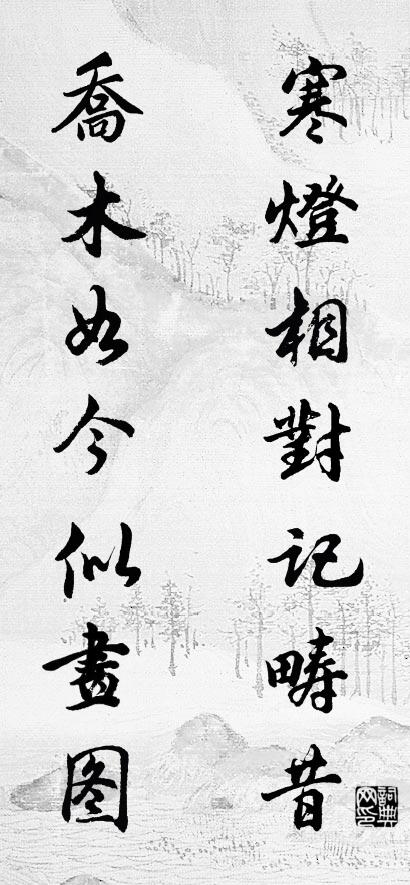 寒燈相對記疇昔
喬木如今似畫图
詞典网印